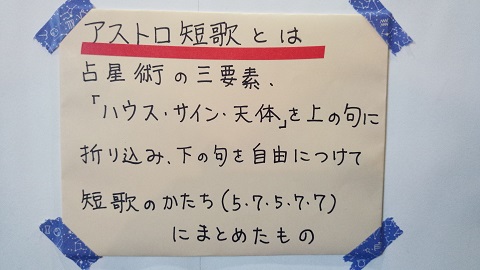 アストロ短歌とは
占星術の三要素、
「ハウス・サイン・天体」を上の句に
折り込み、下の句を自由につけて
短歌のかたち(5・7・5・7・7)
にまとめたもの